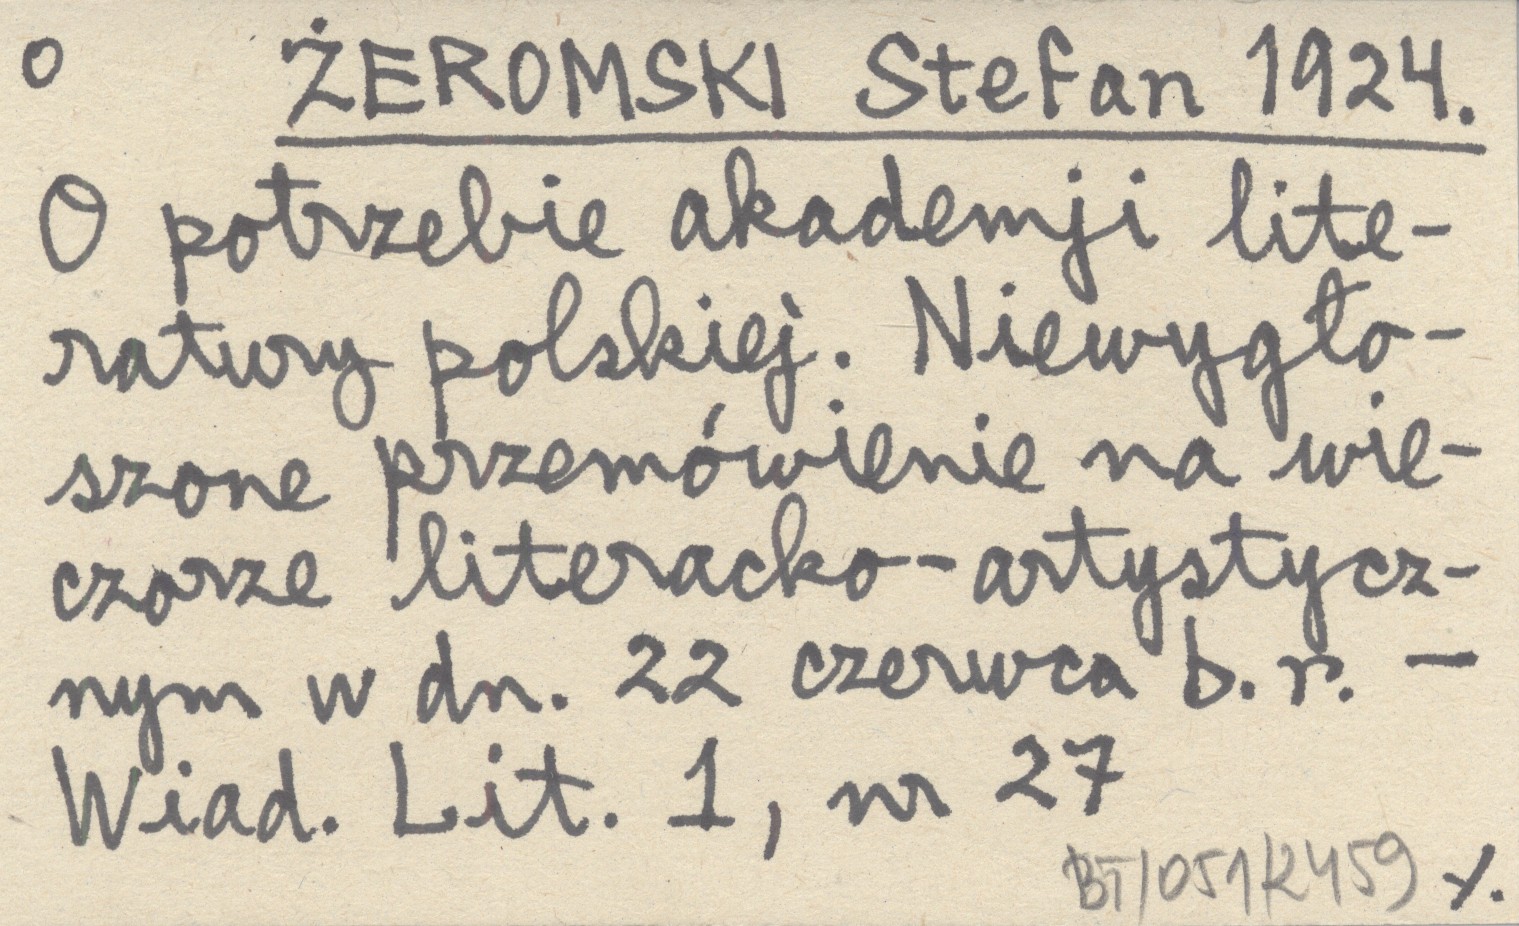 o ŻEROMSKI Stefan 1924.
O potrzebie akademji lite-
ratury polskiej. Niewygło-
szone przemówienie na wie-
czorze literacko-artystycz-
nym w dn. 22 czerwca b.r. —
Wiad. Lit. 1, nr 27
BT/051/2459 y.